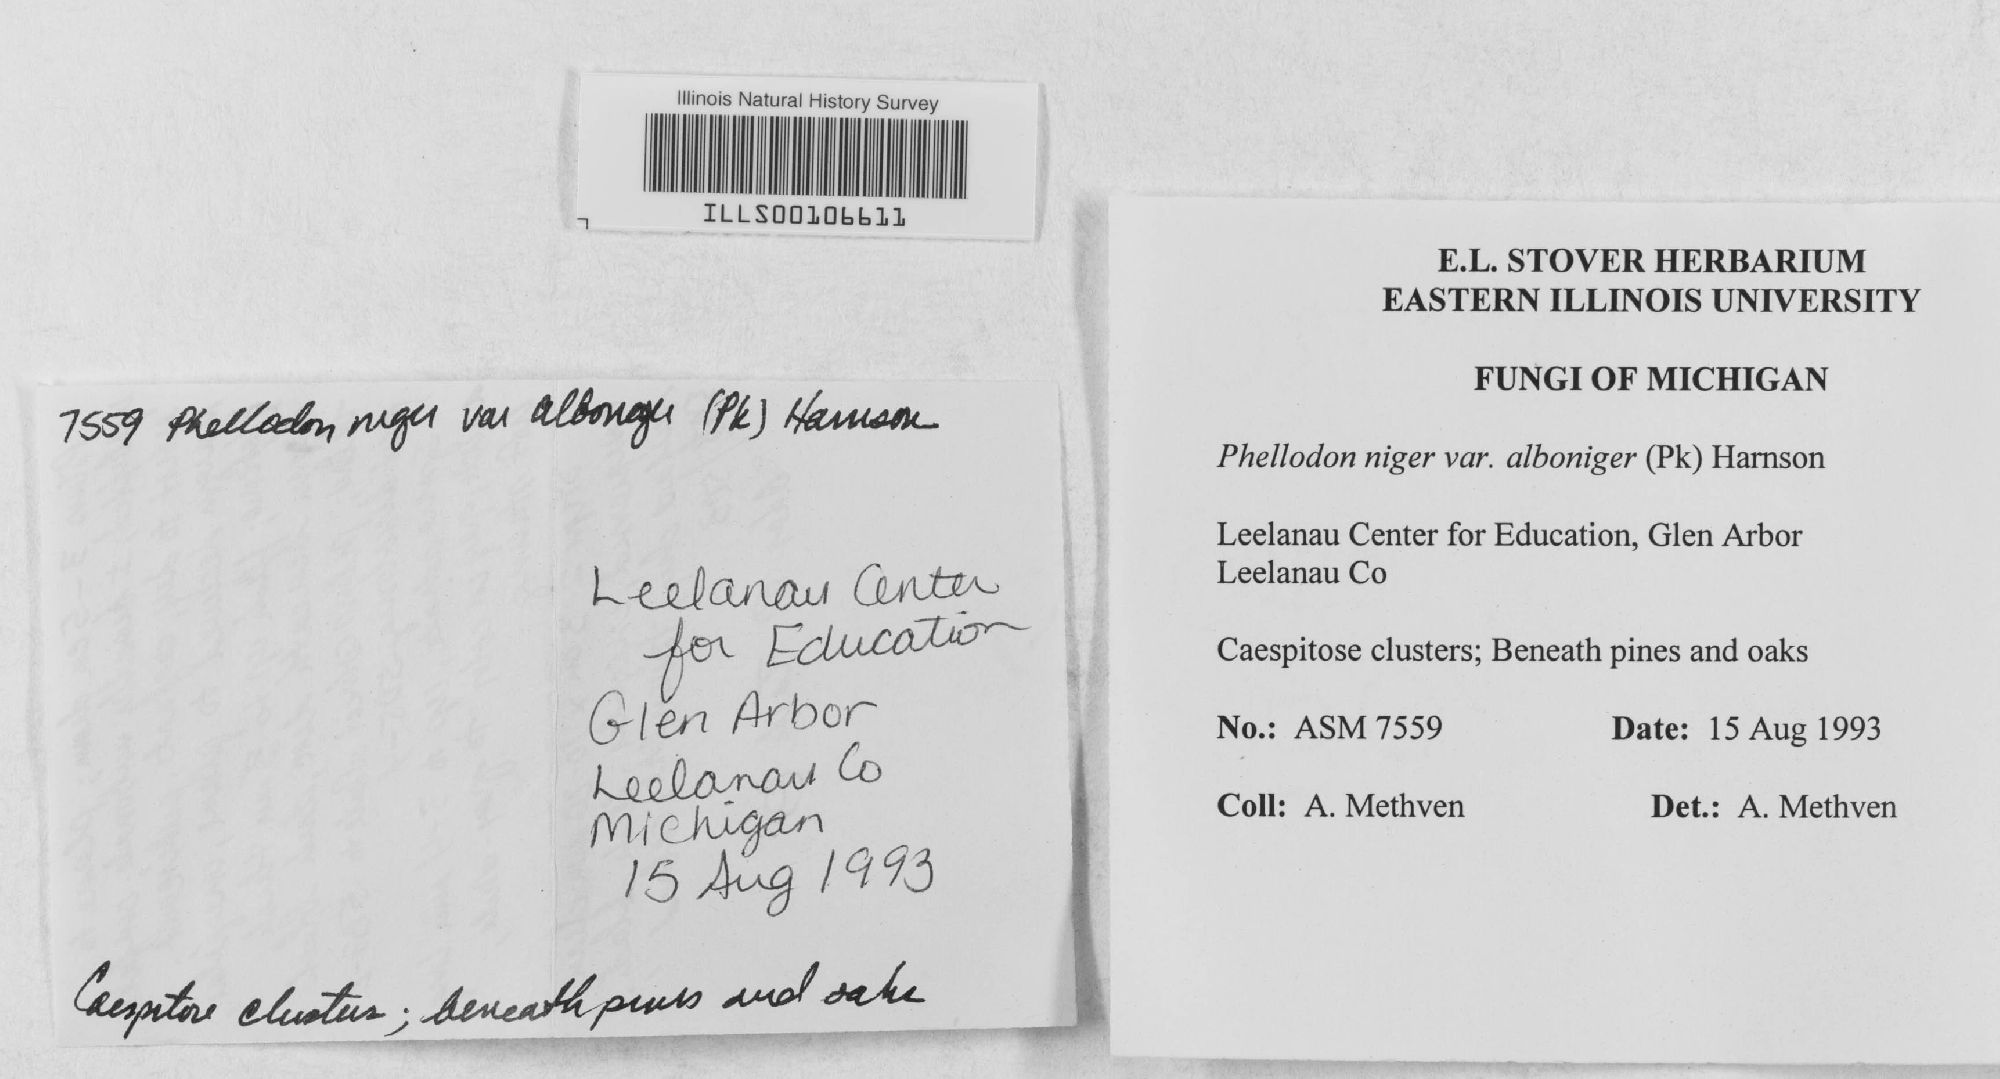 Illinois Natural History Survey
ILLS00106611
7559 Phellodon niger var alboniger (Pk) Harrison
Leelanau Center
for Education
Glen Arbor
Leelanau Co
Michigan
15 Aug 1993
Caespitose clusters; beneath pines and oaks
E.L. STOVER HERBARIUM
EASTERN ILLINOIS UNIVERSITY
FUNGI OF MICHIGAN
Phellodon niger var. alboniger (Pk) Harnson
Leelanau Center for Education, Glen Arbor
Leelanau Co
Caespitose clusters; Beneath pines and oaks
No.: ASM 7559 Date: 15 Aug 1993
Coll: A. Methven Det.: A. Methven